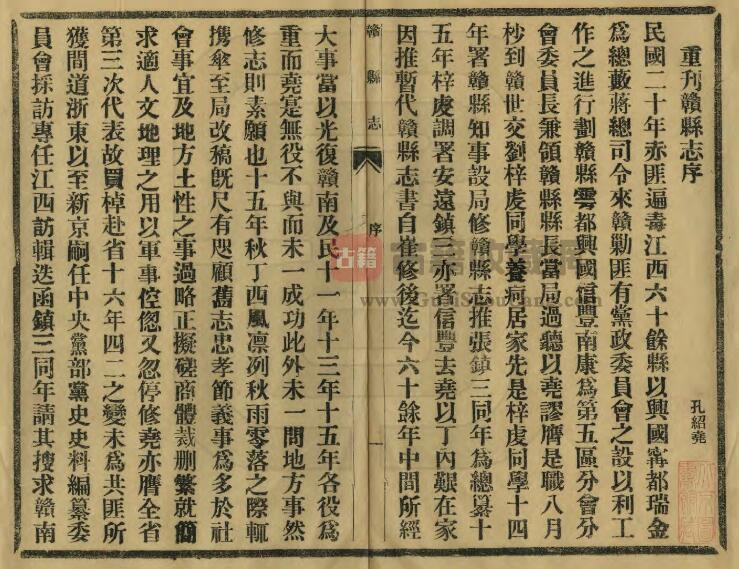 重刋贛縣志序
孔紹堯
民國二十年赤匪遍毒江西六十餘縣以興國甯都瑞金
爲總藪蔣總司令來贛勦匪有黨政委員會之設以利工
作之進行劃贛縣雩都興國信豐南康爲第五區分會分
會委員長兼領贛縣縣長當局過聽以堯謬膺是職八月
杪到贛世交劉梓虔同學養疴居家先是梓虔同學十四
年署贛縣知事設局修贛縣志推張鎮三同年爲總纂十
五年梓虔調署安遠鎮三亦署信豐去堯以丁內艱在家
因推暫代贛縣志書自崔修後迄今六十餘年中間所經
贛縣志
序
一
大事當以光復贛南及民十一年十三年十五年各役爲
重而堯寔無役不與而未一成功此外未一問地方事然
修志則素願也十五年秋丁酉風凛冽秋雨零落之際輒
携傘至局改稿旣尺有咫顧舊志忠孝節義事爲多於社
會事宜及地方土性之事過略正擬磋商體裁删繁就簡
求適人文地理之用以軍事倥偬又忽停修堯亦膺全省
第三次代表故買棹赴省十六年四二之變未爲共匪所
獲間道浙東以至新京嗣任中央黨部黨史史料編纂委
員會採訪專任江西訪輯迭函鎮三同年請其搜求贛南
古籍
www.GuJiShouCang.com